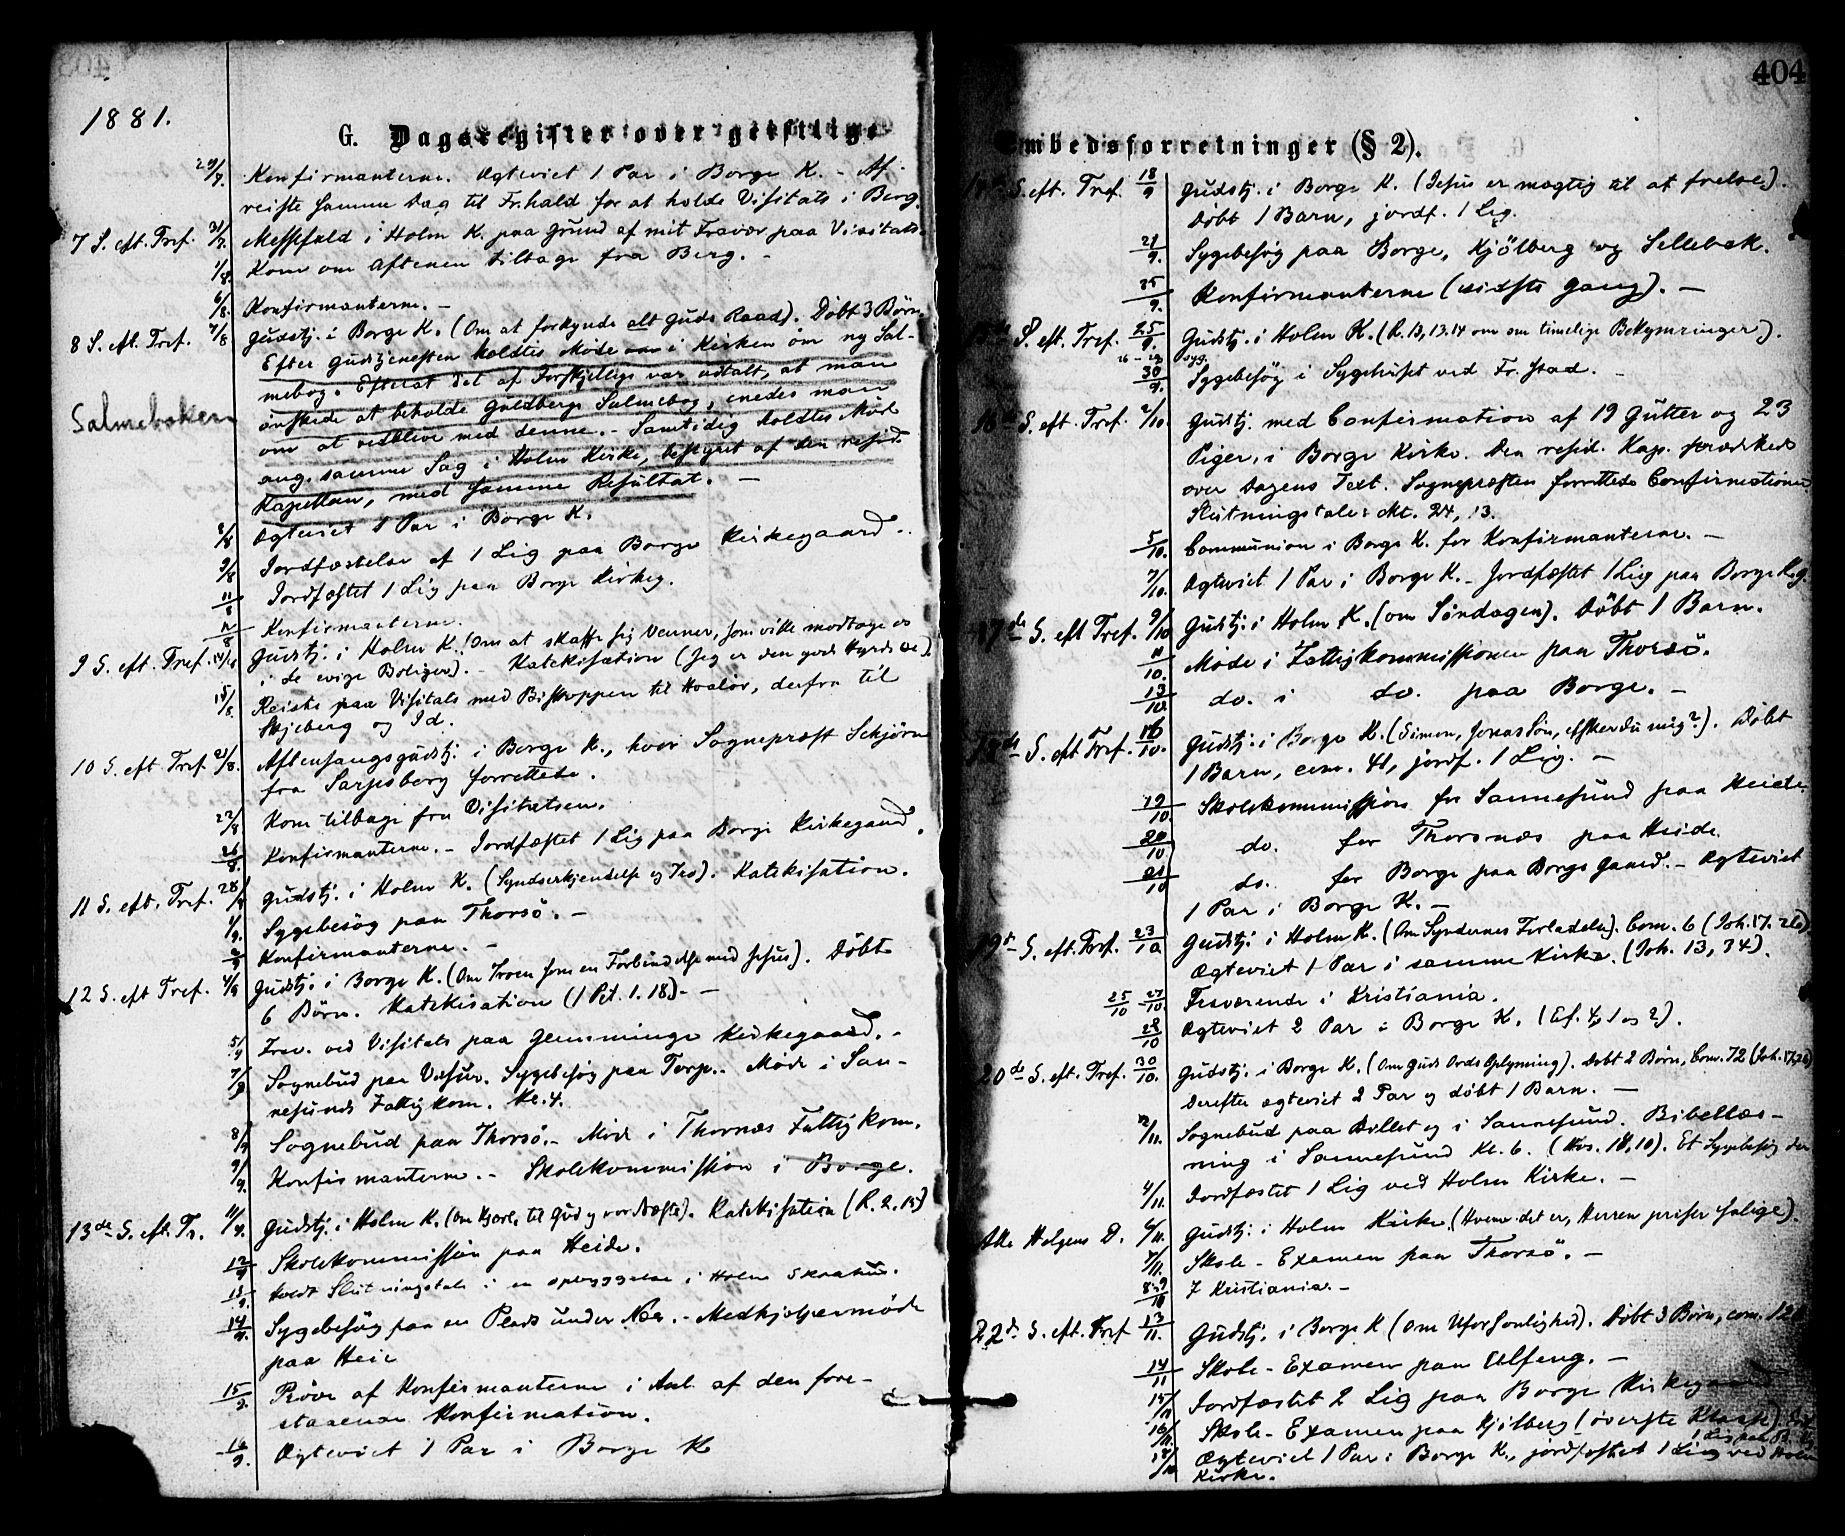 1881.
G. Dagsregister over geistlige
29/7. Konfirmanterne. Ægteviet 1 Par i Borge K. - Af-
reiste samme Dag til Fr.hald for at holde Visitats i Berg.
7 S. eft. Tref. 31/7. Messefald i Holm K. paa Grund af mit Fravær paa Visitats.
1/8. Kom om Aftenen tilbage fra Berg. -
6/8. Konfirmanterne. -
8 S. eft. Tref. 7/8 Gudstj. i Borge K. (Om at forkynde alt Guds Raad). Døbt 3 Børn.
Efter Gudstjenesten holdtes Møde i Kirken om ny Sal-
mebog. Efterat det af Forskjellige var udtalt, at man
Salmeboken
ønskede at beholde Guldbergs Salmebog, enedes man
om at vedblive med denne. - Samtidig holdtes Møde
ang. samme Sag i Holm Kirke, bestyret af den resid.
Kapellan, med samme Resultat. -
8/8 Ægteviet 1 Par i Borge K.
9/8 Jordfæstelse af 1 Lig paa Borge Kirkegaard.
11/8 Jordfæstet 1 Lig paa Borge Kirkeg.
12/8 Konfirmanterne.
9 S. eft. Tref. 14/8 Gudstj. i Holm K. (Om at skaffe sig Venner, som ville modtage os
i de evige Boliger). - Katekisation (Jeg er den gode Hyrde &c)
15/8. Reiste paa Visitats med Biskoppen til Hvaløer, derfra til
Skjeberg og Id.
10 S. eft Tref. 21/8. Aftensangsgudstj. i Borge K., hvor Sognepræst Schjørn
fra Sarpsborg forrettede.
22/8 Kom tilbage fra Visitatsen.
26/8. Konfirmanterne. - Jordfæstet 1 Lig paa Borge Kirkegaard.
11 S. eft. Tref. 28/8 Gudstj. i Holm K. (Syndserkjendelse og Tro). Katekisation.
1/9. Sygebesøg paa Thorsø. -
2/9 Konfirmanterne. -
12 S. eft Tref. 4/9 Gudstj. i Borge K. (Om Troen som en Forbindelse med Jesus). Døbt
6 Børn. Katekisation (1 Pet. 1. 18). -
5/9 Frav. ved Visitats paa Glemminge Kirkegaard. -
7/9 Sognebud paa . Sygebesøg paa Torp. - Møde i San-
nesunds Fattigkom. Kl. 4.
8/9 Sognebud paa Thorsø. - Møde i Thornæs Fattigkom.
9/9. Konfirmanterne. - Skolekommission i Borge.
13de S. eft. Tr. 11/9. Gudstj. i Holm K. (Om Kjærl. til Gud og vor Næste). Katekisation (R. 2. 15)
12/9 Skolekommission paa Heide.
13/9. Holdt Slutningstale i en opbyggelse i Holm Skoolhus.
14/9. Sygebesøg paa en Plads under Næs. - Medhjelpermøde
paa Heie
15/9. Prøve af Konfirmanterne i Anl. af den fore-
staaende Konfirmation.
16/9. Ægteviet 1 Par i Borge K
404
Embedsforretninger (§ 2).
14de S. eft. Tref. 18/9 Gudstj. i Borge K. (Jesus er mægtig til at frelse).
Døbt 1 Barn, jordf. 1 Lig.
21/9. Sygebesøg paa Borge, Kjølberg og Sellebak.
25/9. Konfirmanterne (sidste Gang). -
15de S. eft. Tref. 25/9. Gudstj. i Holm K. (R. 13, 13. 14 om om timelige Bekymringer).
26-29 syg.
30/9. Sygebesøg i Sygehuset ved Fr.stad. -
16de S. eft. Tref. 2/10. Gudstj. med Confirmation af 19 Gutter og 23
Piger, i Borge Kirke. Den resid. Kap. prædikede
over Dagens Text. Sognepræsten forrettede Confirmationen
Slutningstale: Mt. 24, 13.
5/10. Communion i Borge K. for Konfirmanterne. -
7/10. Ægteviet 1 Par i Borge K. - Jordfæstet 1 Lig paa Borge K.g.
17de S. eft Tref. 9/10 Gudstj. i Holm K. (om Søndagen). Døbt 1 Barn.
11/10. Møde i Fattigkommissionen paa Thorsø.
13/10. do. i do. paa Borge. -
18de S. eft Tref. 16/10. Gudstj. i Borge K. (Simon, Jonas Søn, elsker du mig?). Døbt
1 Barn, com. 41, jordf. 1 Lig. -
19/10 Skolekommission for Sannesund paa Heide.
20/10 do. for Thorsnæs paa Heide
21/10 do. for Borge paa Borge Gaard. - Ægteviet
1 Par i Borge K. -
19de S. eft. Tref. 23/10 Gudstj. i Holm K. (Om Syndernes Forladelse). Com. 6 (Joh. 17. 26).
Ægteviet 1 Par i samme Kirke. (Joh. 13, 34).
25/10 - 27/10. Fraværende i Kristiania.
28/10 Ægteviet 2 Par i Borge K. (Ef. 4, 1 og 2).
20de S. eft. Tref. 30/10. Gudstj. i Borge K. (Om Guds Ords Oplysning). Døbt 2 Børn, Com. 72 (Joh. 17,26)
Derefter ægteviet 2 Par og døbt 1 Barn. -
2/11. Sognebud paa og i Sannesund. Bibellæs-
ning i Sannesund Kl. 6. . Et Sygebesøg der
4/11. Jordfæstet 1 Lig ved Holm Kirke. -
Alle Helgens D. 6/11. Gudstj. i Holm Kirke (Hvem det er, Herren priser salige).
7/11. Skole-Examen paa Thorsø. -
8-9/11 I Kristiania. -
22de S. eft. Tref 13/11. Gudstj. i Borge K (om Uforsonlighed). Døbt 3 Børn, com. 12
14/11 Skole-Examen paa Ulfeng. -
15/11 Jordfæstet 2 Lig paa Borge Kirkegaard
16/11. Skole-Examen paa Kjølberg (øverste Klasse).
1 Lig paa B. Kg.
18/11 Ægteviet 1 Par i Borge K., jordfæstet 1 Lig ved Holm
Kirke.